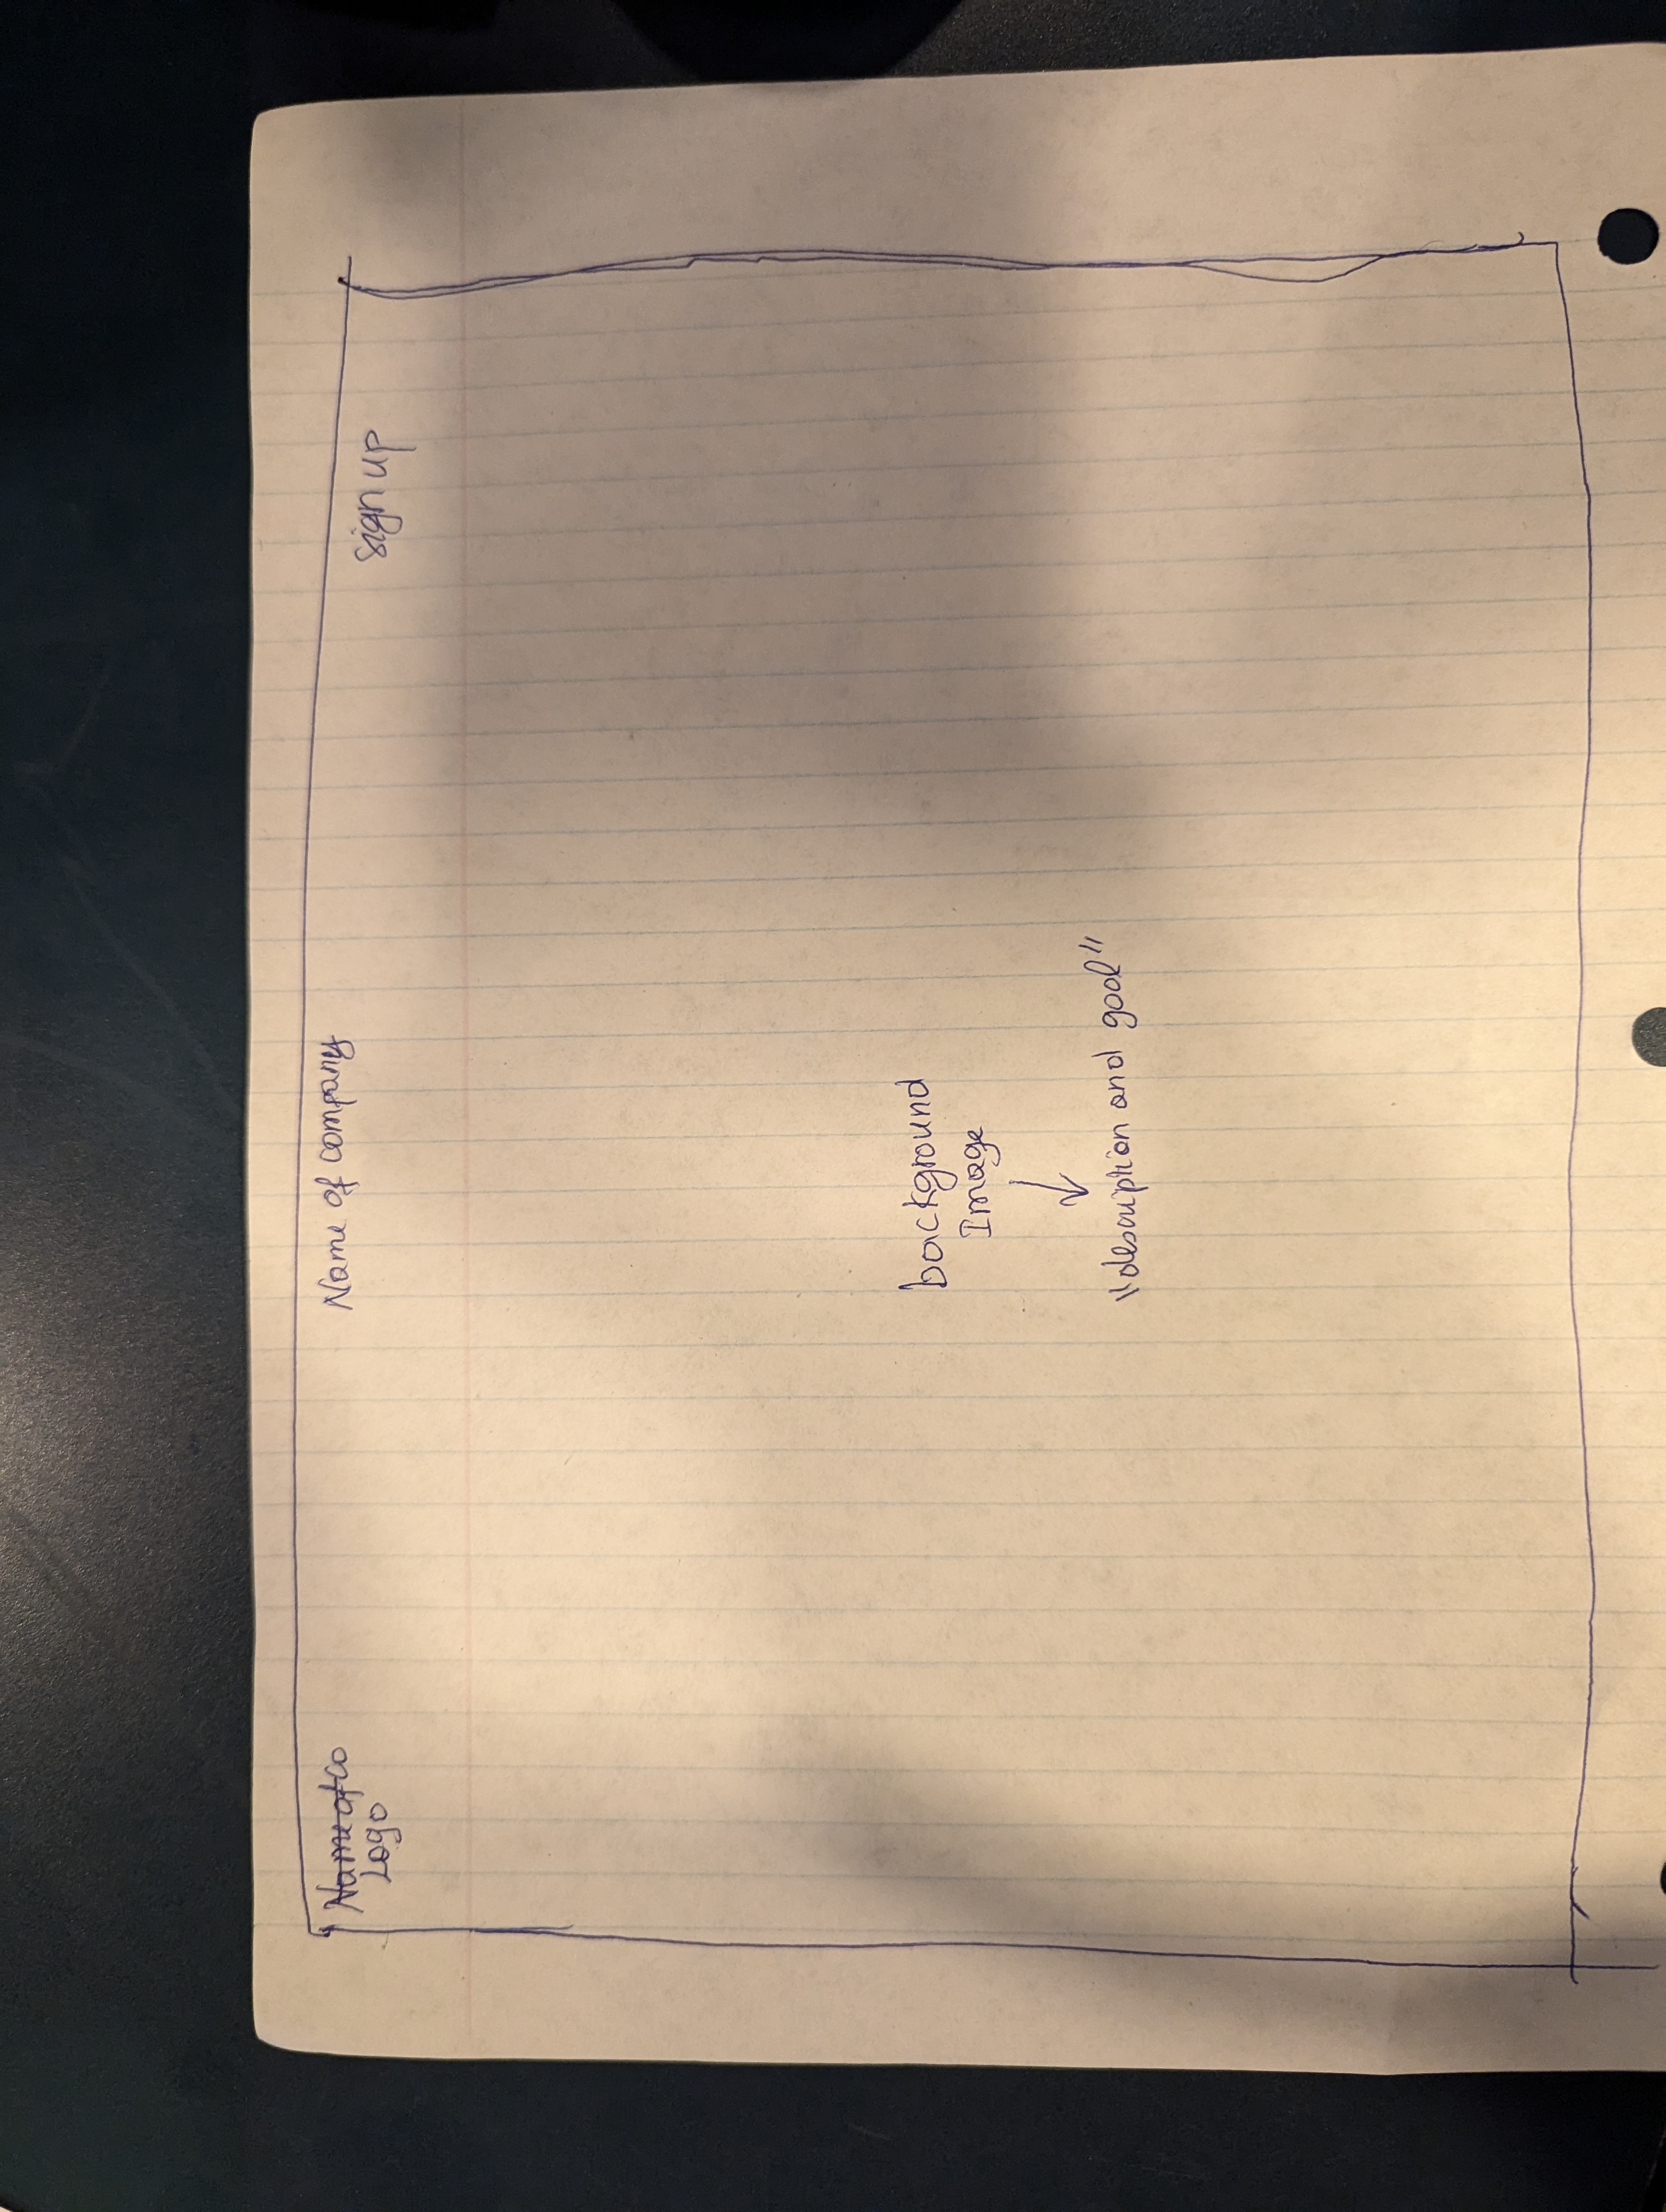 Name of co
Logo
Name of company
sign up
background
Image
"description and goal"